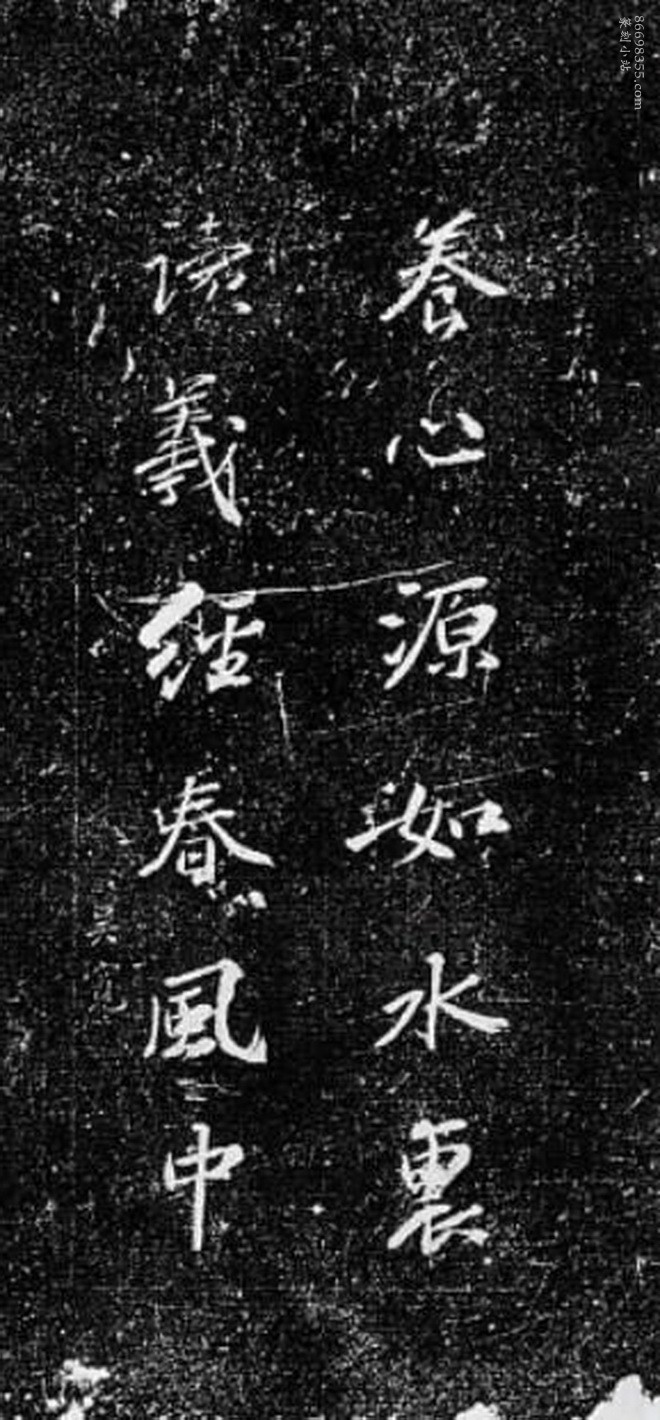 養心源如水裏
读義經春風中
吴寬
86698355.com
篆刻小站